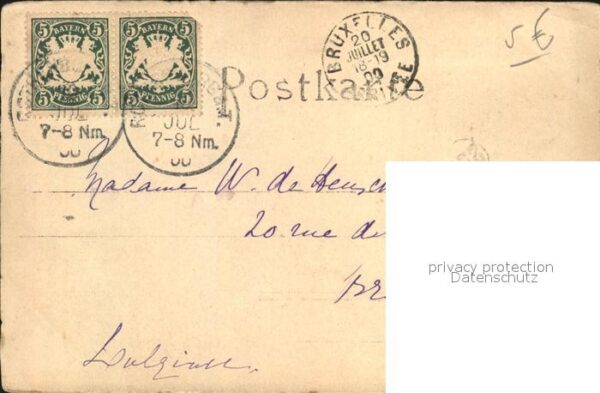 BAYERN BAYERN
5 5 5 5
5 PFENNIG 5 5 PFENNIG 5
BRUXELLES
20
JUILLET
16-19
5 €
Postkarte
JUL
7-8 Nm.
00
JUL
7-8 Nm.
00
Madame W. de
20 rue de
privacy protection
Datenschutz
Belgique